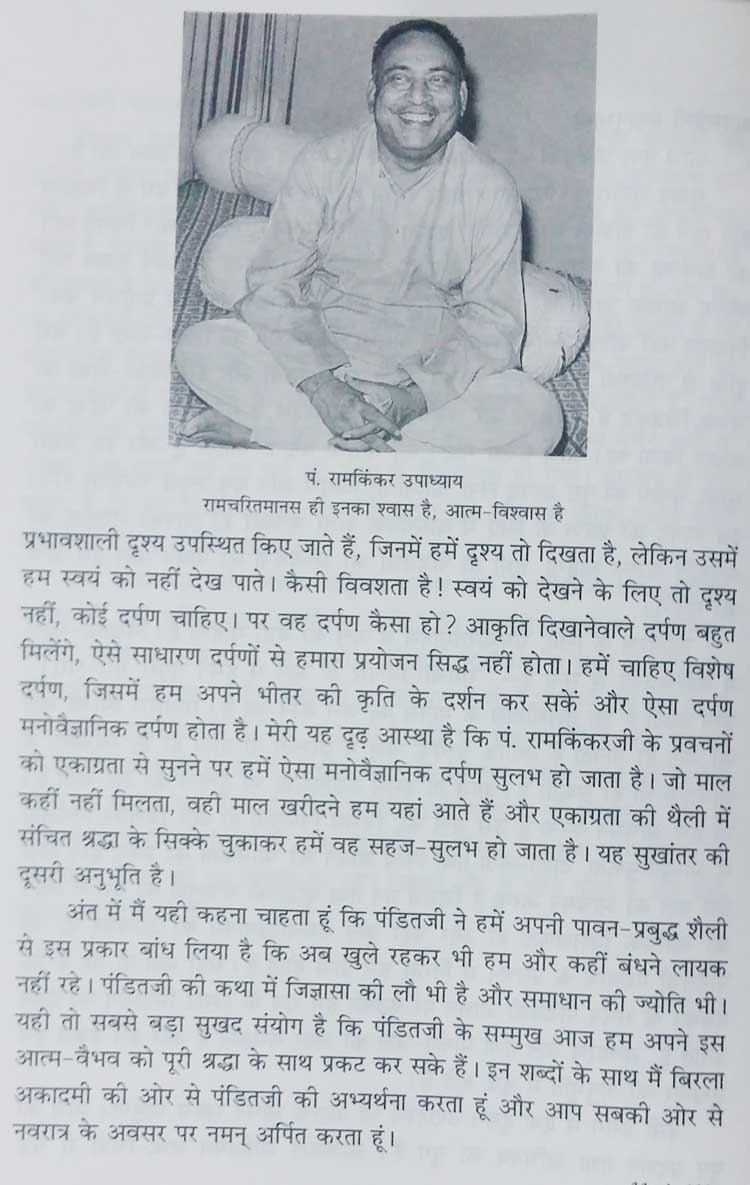 पं. रामकिंकर उपाध्याय
रामचरितमानस ही इनका श्वास है, आत्म-विश्वास है
प्रभावशाली दृश्य उपस्थित किए जाते हैं, जिनमें हमें दृश्य तो दिखता है, लेकिन उसमें
हम स्वयं को नहीं देख पाते। कैसी विवशता है! स्वयं को देखने के लिए तो दृश्य
नहीं, कोई दर्पण चाहिए। पर वह दर्पण कैसा हो? आकृति दिखानेवाले दर्पण बहुत
मिलेंगे, ऐसे साधारण दर्पणों से हमारा प्रयोजन सिद्ध नहीं होता। हमें चाहिए विशेष
दर्पण, जिसमें हम अपने भीतर की कृति के दर्शन कर सकें और ऐसा दर्पण
मनोवैज्ञानिक दर्पण होता है। मेरी यह दृढ़ आस्था है कि पं. रामकिंकरजी के प्रवचनों
को एकाग्रता से सुनने पर हमें ऐसा मनोवैज्ञानिक दर्पण सुलभ हो जाता है। जो माल
कहीं नहीं मिलता, वही माल खरीदने हम यहां आते हैं और एकाग्रता की थैली में
संचित श्रद्धा के सिक्के चुकाकर हमें वह सहज-सुलभ हो जाता है। यह सुखांतर की
दूसरी अनुभूति है।
अंत में मैं यही कहना चाहता हूं कि पंडितजी ने हमें अपनी पावन-प्रबुद्ध शैली
से इस प्रकार बांध लिया है कि अब खुले रहकर भी हम और कहीं बंधने लायक
नहीं रहे। पंडितजी की कथा में जिज्ञासा की लौ भी है और समाधान की ज्योति भी।
यही तो सबसे बड़ा सुखद संयोग है कि पंडितजी के सम्मुख आज हम अपने इस
आत्म-वैभव को पूरी श्रद्धा के साथ प्रकट कर सके हैं। इन शब्दों के साथ मैं बिरला
अकादमी की ओर से पंडितजी की अभ्यर्थना करता हूं और आप सबकी ओर से
नवरात्र के अवसर पर नमन् अर्पित करता हूं।